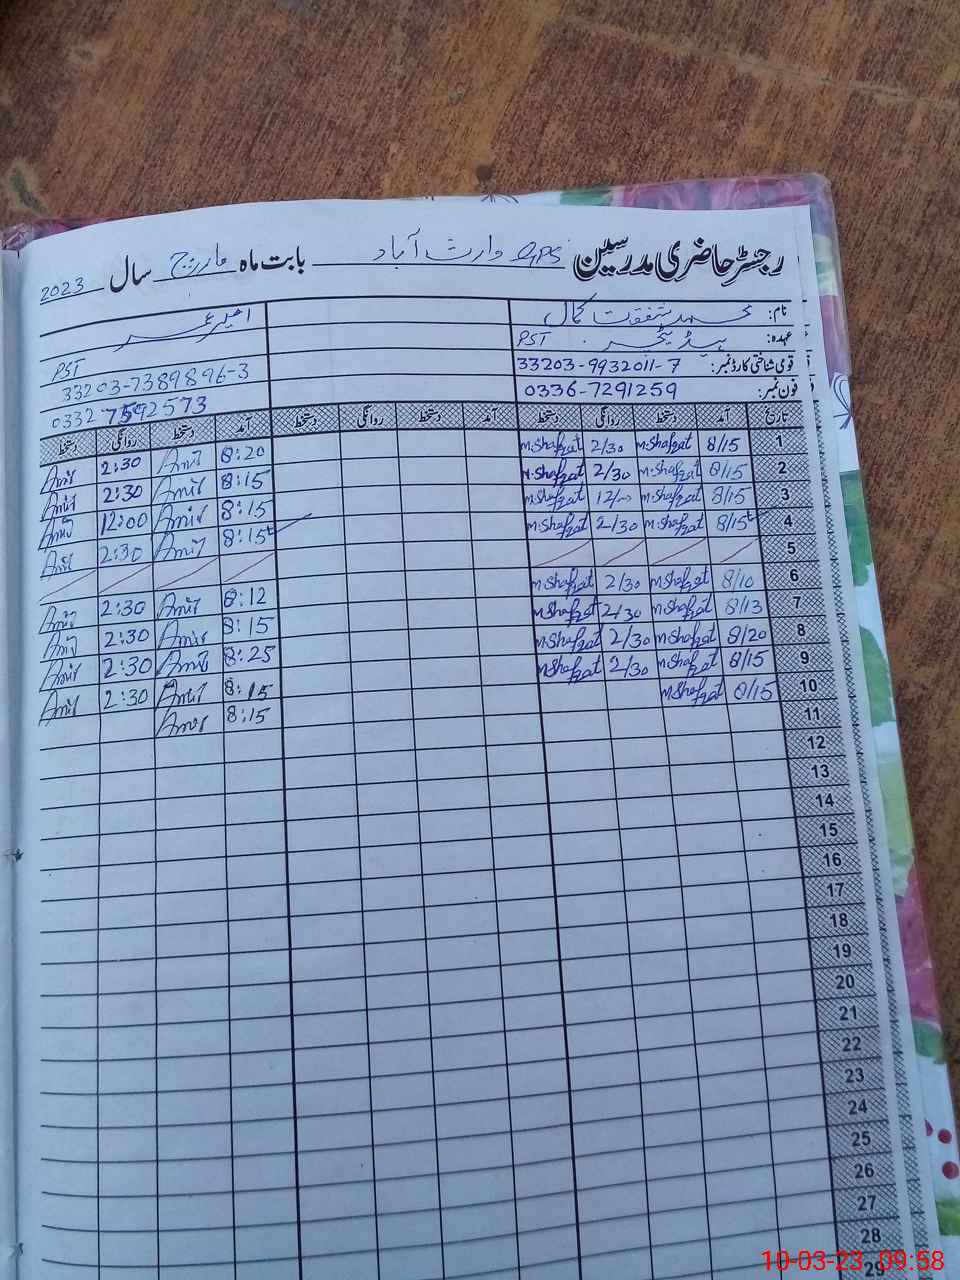 رجسٹر حاضری مدرسین GPS وارث آباد بابت ماہ مارچ سال 2023
نام: محمد شفقت کمال امیر عمر
عہدہ: ہیڈ ٹیچر PST PST
قومی شناختی کارڈ نمبر: 33203-9932011-7 33203-7389896-3
فون نمبر: 0336-7291259 0332-7592573
تاریخ آمد دستخط روانگی دستخط آمد دستخط روانگی دستخط آمد دستخط روانگی دستخط
1 8/15 M.Shafqat 2/30 M.Shafqat 8:20 Amir 2:30 Amir
2 8/15 M.Shafqat 2/30 M.Shafqat 8:15 Amir 2:30 Amir
3 8/15 M.Shafqat 12/00 M.Shafqat 8:15 Amir 12:00 Amir
4 8/15 M.Shafqat 2/30 M.Shafqat 8:15 Amir 2:30 Amir
5
6 8/10 M.Shafqat 2/30 M.Shafqat 8:12 Amir 2:30 Amir
7 8/13 M.Shafqat 2/30 M.Shafqat 8:15 Amir 2:30 Amir
8 8/20 M.Shafqat 2/30 M.Shafqat 8:25 Amir 2:30 Amir
9 8/15 M.Shafqat 2/30 M.Shafqat 8:15 Amir 2:30 Amir
10 8/15 M.Shafqat 8:15 Amir
11
12
13
14
15
16
17
18
19
20
21
22
23
24
25
26
27
28
29
10-03-23 09:58